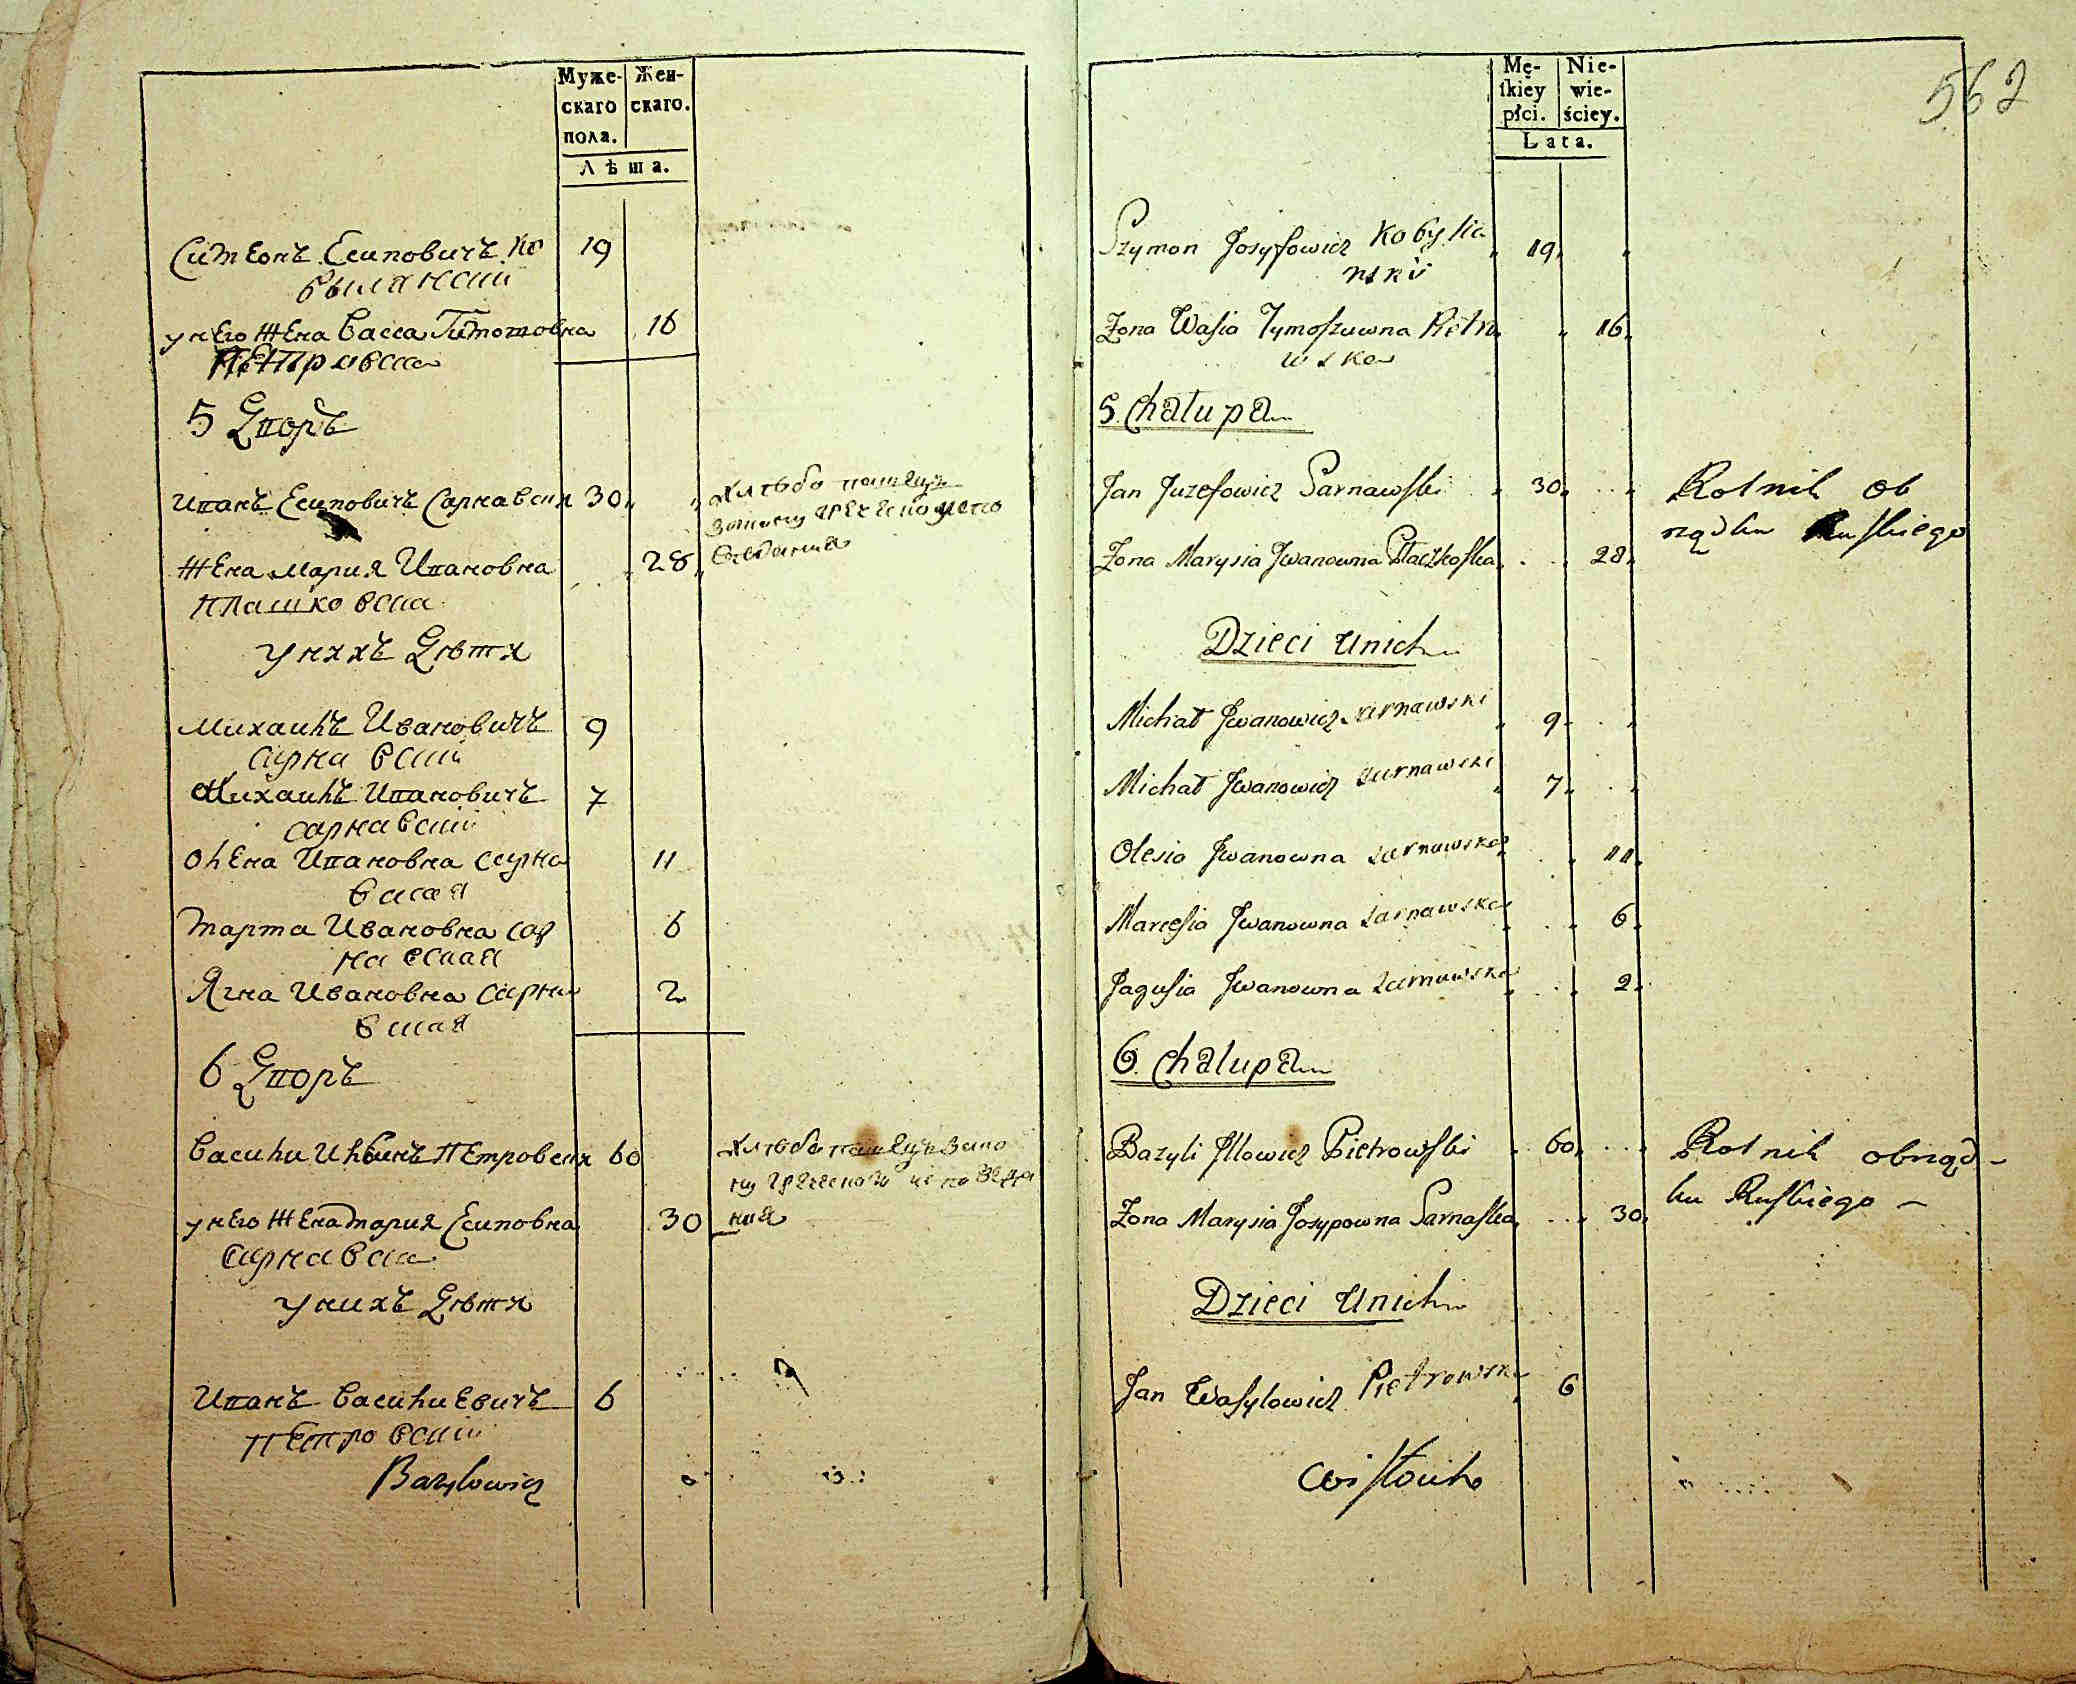 Муже-
скаго
пола.
Жен-
скаго.
Лѣта.
Симеонъ Есиповичъ Ко 19
былянский
у него жена Васса Тимотовна 16
Петровска
5 Дворъ
Иванъ Есиповичъ Сарнавски 30
Жена Мария Ивановна 28
Плашковска
у нихъ Дѣти
Михаилъ Ивановичъ 9
Сарнавский
Михаилъ Ивановичъ 7
сарнавский
Олена Ивановна Сарна 11
вская
Марта Ивановна сар 6
навская
Ягна Ивановна Сарна 2
вская
6 Дворъ
Васили Илвичъ Петровски 60
у него Жена Мария Есиповна 30
Сарнавска
у нихъ Дѣти
Иванъ Васильевичъ 6
Петровский
Bazylowicz
562
Mę-
skiey
płci.
Nie-
wie-
ściey.
Lata.
Szymon Josyfowicz Kobylia 19
nski
Żona Wasia Tymoszuwna Pietro 16
wska
5. Chałupa
Jan Juzefowicz Sarnawski 30 Rolnik ob
rządku Ruskiego
Żona Marysia Jwanowna Płaczkoska 28
Dzieci u nich
Michał Jwanowicz Sarnawski 9
Michał Jwanowicz Sarnawski 7
Olesia Jwanowna Sarnawska 11
Marcesia Jwanowna Sarnawska 6
Jagusia Jwanowna Sarnawska 2
6. Chalupa
Bazyli Jllowicz Pietrowski 60 Rolnik obrząd-
ku Ruskiego
Żona Marysia Josypowna Sarnaska 30
Dzieci u nich
Jan Wasylowicz Pietrowski 6